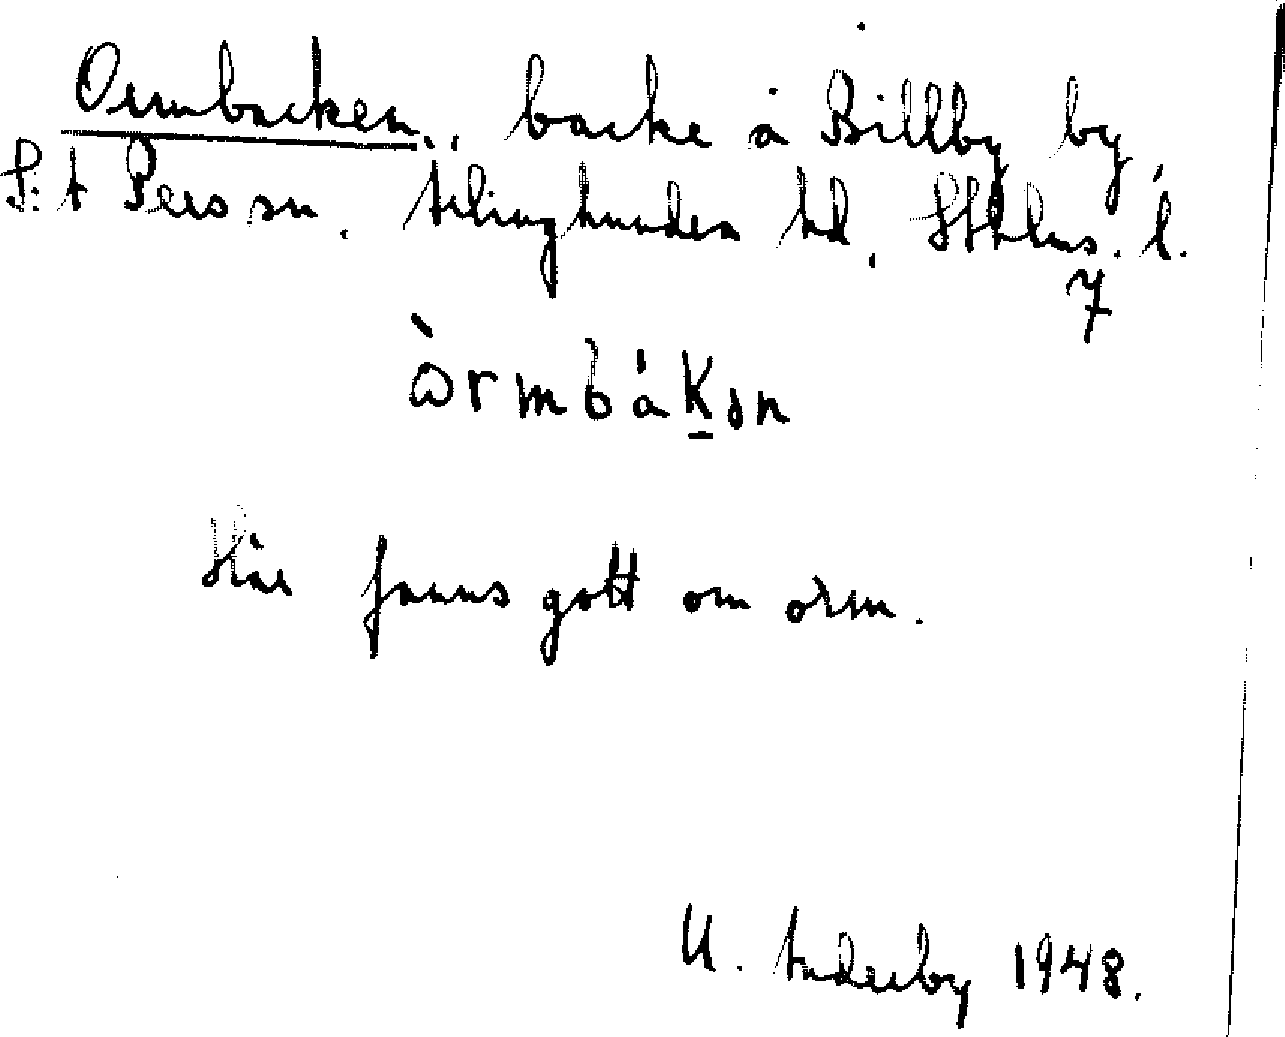 Ormbacken, backe å Billby by
S:t Pers sn. Ärlinghundra hd, Sthlms. l.
7
òrmbákən
Här fanns gott om orm.
U. Anderby 1948.